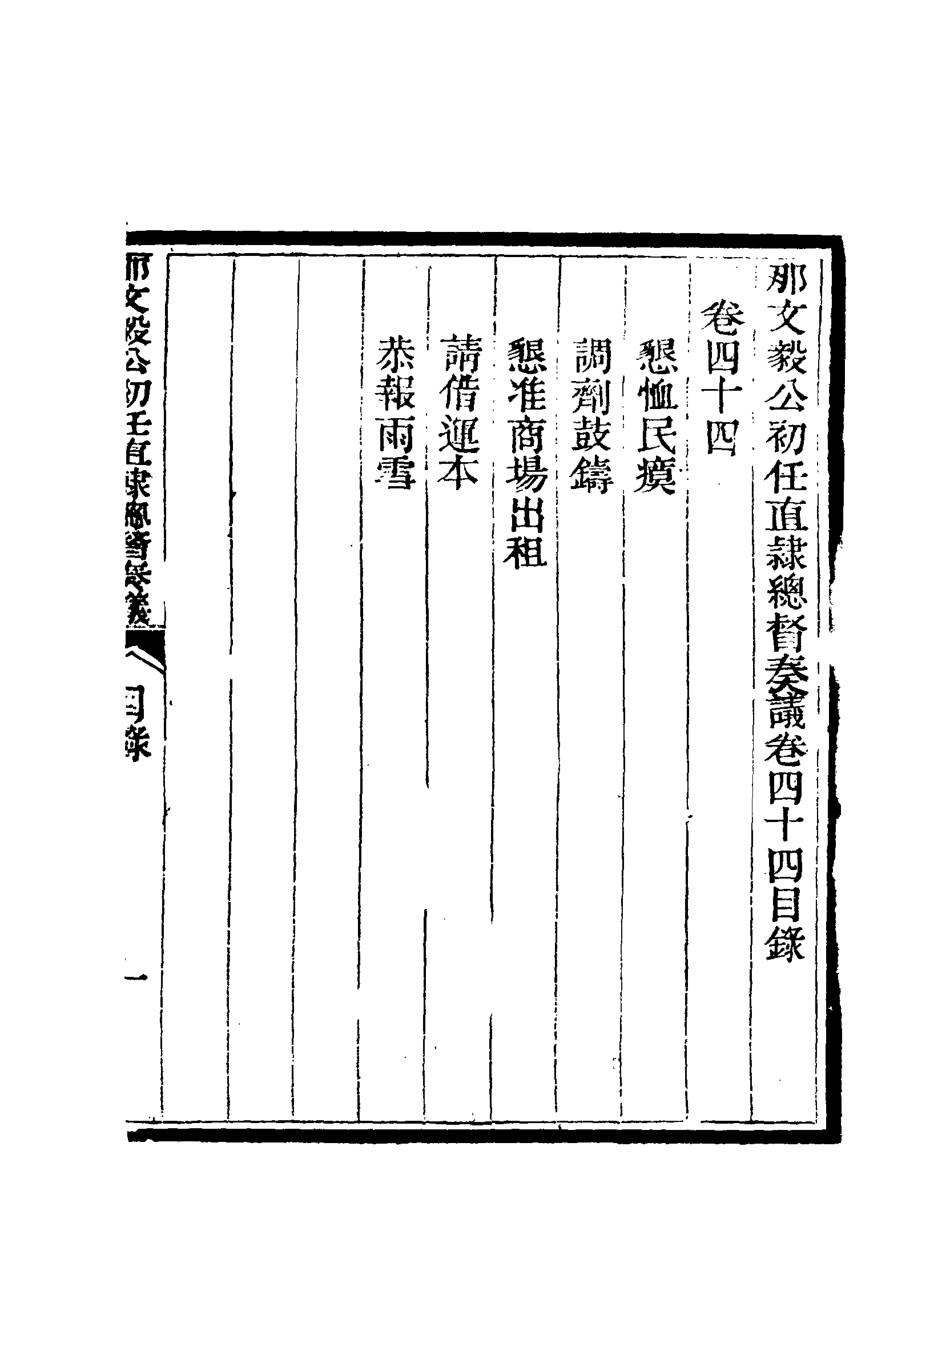 那文毅公初任直隷總督奏議卷四十四目錄
卷四十四
懇恤民瘼
調劑鼓鑄
懇准商場出租
請借運本
恭報雨雪
那文毅公初任直隷總督奏議
目錄
一